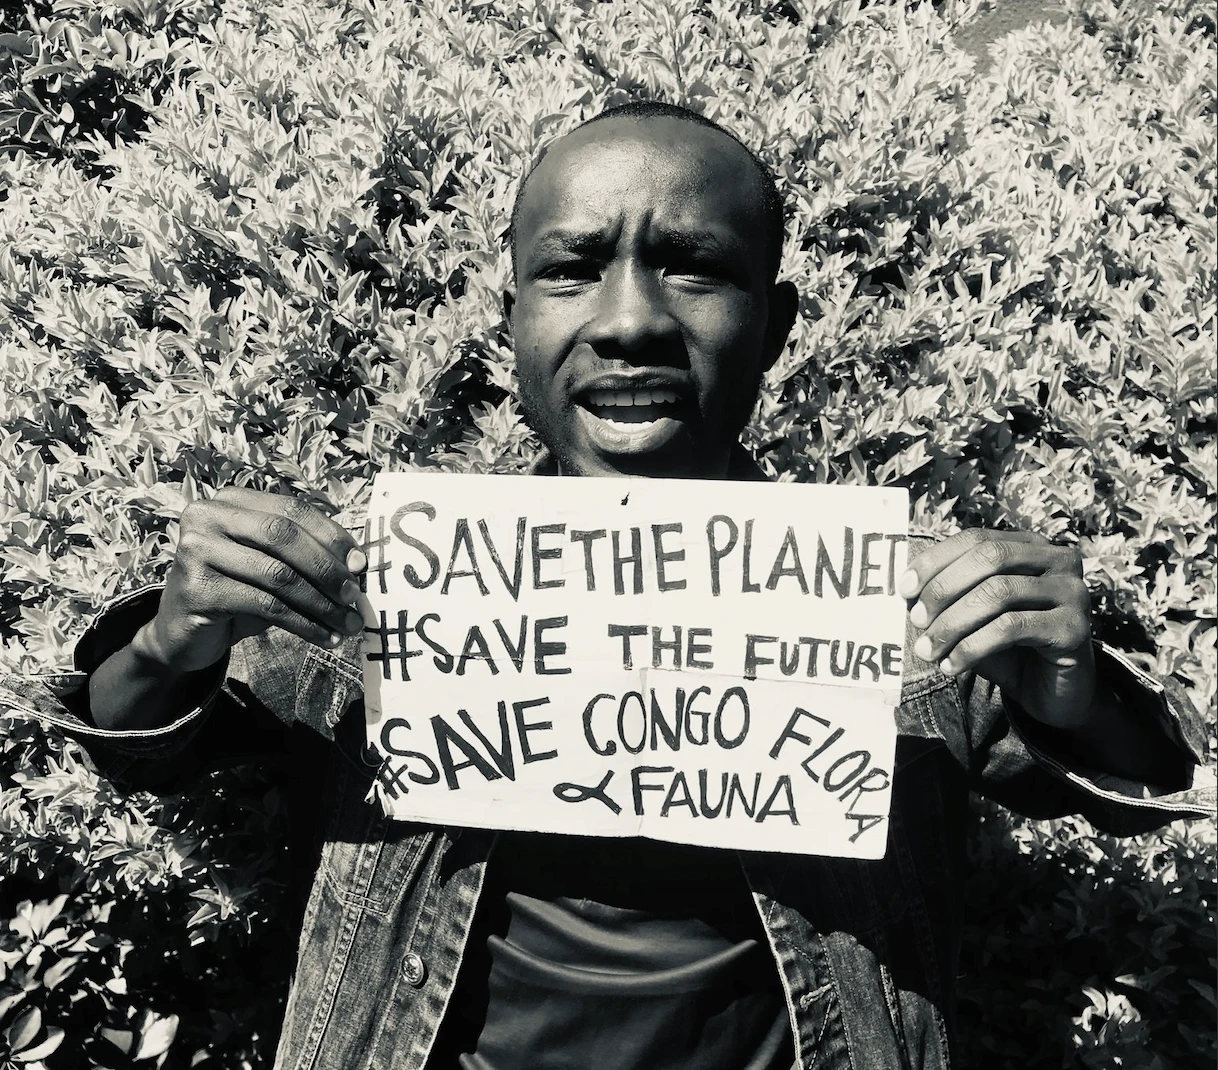 #SAVETHE PLANET
#SAVE THE FUTURE
#SAVE CONGO FLORA
& FAUNA